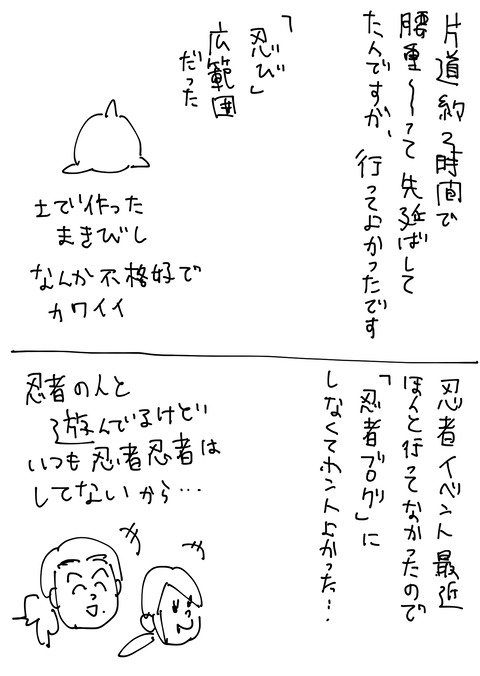 片道約2時間で
腰重〜って先延ばして
たんですが、行ってよかったです
「忍び」
広範囲
だった
土で作った
まきびし
なんか不格好で
カワイイ
忍者イベント最近
ほんと行ってなかったので
「忍者ブログ」に
しなくてホントよかった…
忍者の人と
遊んでいるけど
いつも忍者忍者は
してないから…